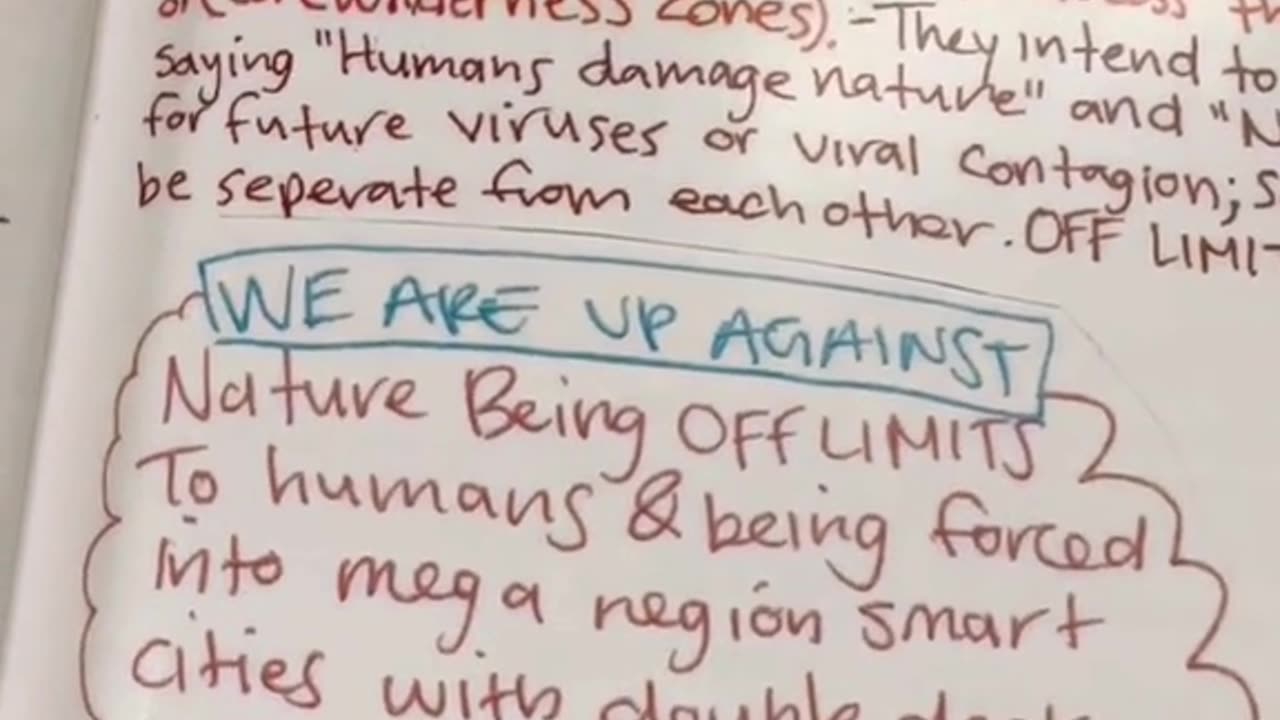 wilderness zones). - They intend to
saying "Humans damage nature" and "N
for future viruses or viral contagion; s
be seperate from each other. OFF LIMIT
WE ARE UP AGAINST
Nature Being OFF LIMITS
To humans & being forced
into mega region smart
cities with double deck